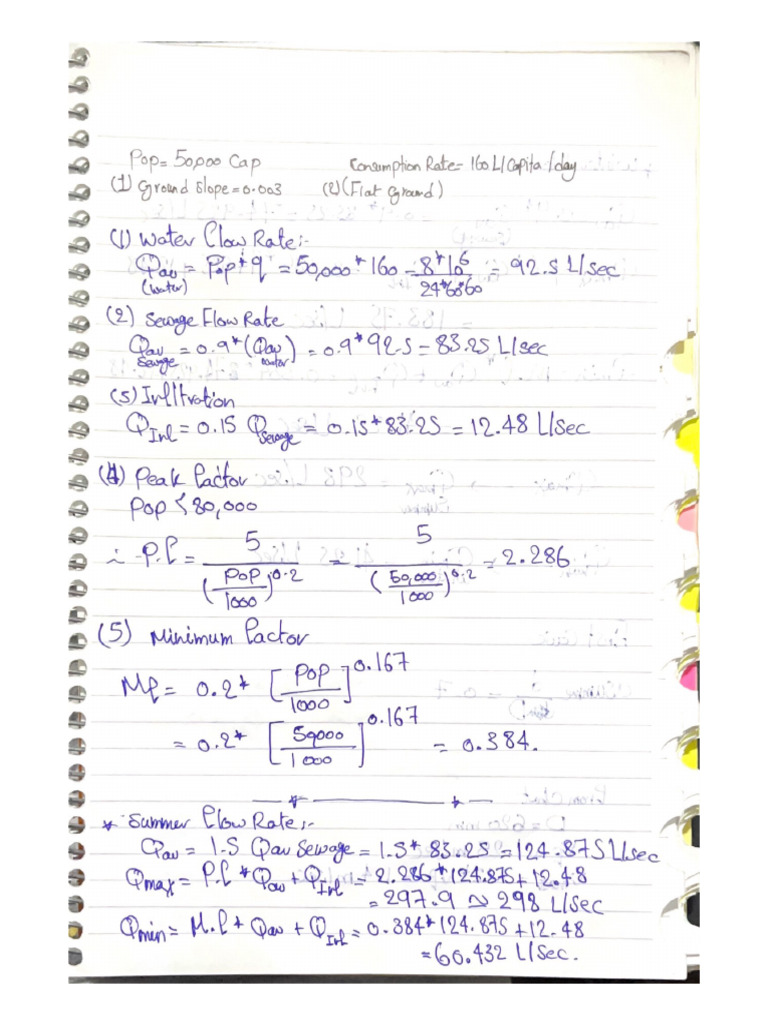 Pop = 50,000 Cap Consumption Rate = 160 L/Capita/day
(1) Ground Slope = 0.003 (2) (Flat Ground)
(1) Water Flow Rate:-
Qav = Pop * q = 50,000 * 160 = 8*10^6 / 24*60*60 = 92.5 L/sec
(water)
(2) Sewage Flow Rate
Qav Sewage = 0.9 * (Qav water) = 0.9 * 92.5 = 83.25 L/sec
(3) Infiltration
QInf = 0.15 QSewage = 0.15 * 83.25 = 12.48 L/sec
(4) Peak factor
Pop < 80,000
∴ P.f = 5 / (Pop/1000)^0.2 = 5 / (50,000/1000)^0.2 = 2.286
(5) Minimum factor
Mf = 0.2 * [Pop/1000]^0.167
= 0.2 * [50,000/1000]^0.167 = 0.384.
* Summer Flow Rate:-
Qav = 1.5 Qav Sewage = 1.5 * 83.25 = 124.875 L/sec
Qmax = P.f * Qav + QInf = 2.286 * 124.875 + 12.48
= 297.9 ≈ 298 L/sec
Qmin = M.f * Qav + QInf = 0.384 * 124.875 + 12.48
= 60.432 L/sec.